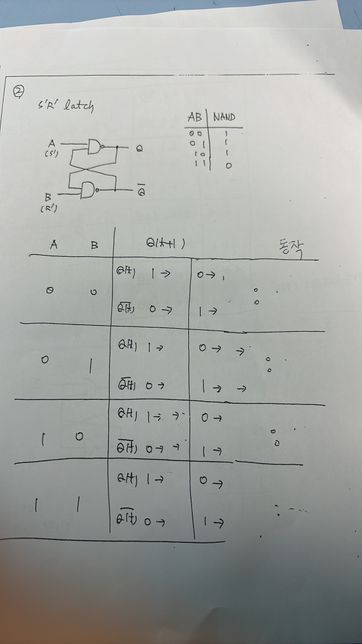 ②
S'R' latch
AB NAND
00 1
01 1
10 1
11 0
A Q
(S')
B Q̅
(R')
A B Q(t+1) 동작
0 0 Q(t) 1 → 0 →
Q̅(t) 0 → 1 →
0 1 Q(t) 1 → 0 → →
Q̅(t) 0 → 1 → →
1 0 Q(t) 1 → → 0 →
Q̅(t) 0 → → 1 →
1 1 Q(t) 1 → 0 →
Q̅(t) 0 → 1 →